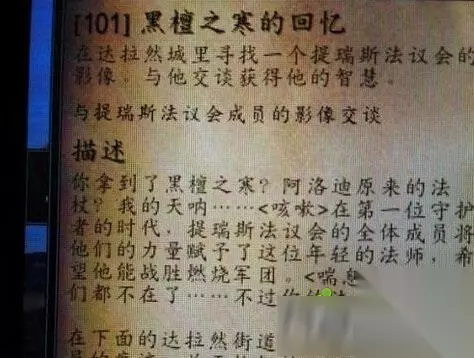 [101] 黑檀之寒的回忆
在达拉然城里寻找一个提瑞斯法议会的
影像。与他交谈获得他的智慧。
与提瑞斯法议会成员的影像交谈
描述
你拿到了黑檀之寒？阿洛迪原来的法
杖？我的天呐……<咳嗽>在第一位守护
者的时代，提瑞斯法议会的全体成员将
他们的力量赋予了这位年轻的法师，希
望他能战胜燃烧军团。<喘息
们都不在了……不过
在下面的达拉然街道